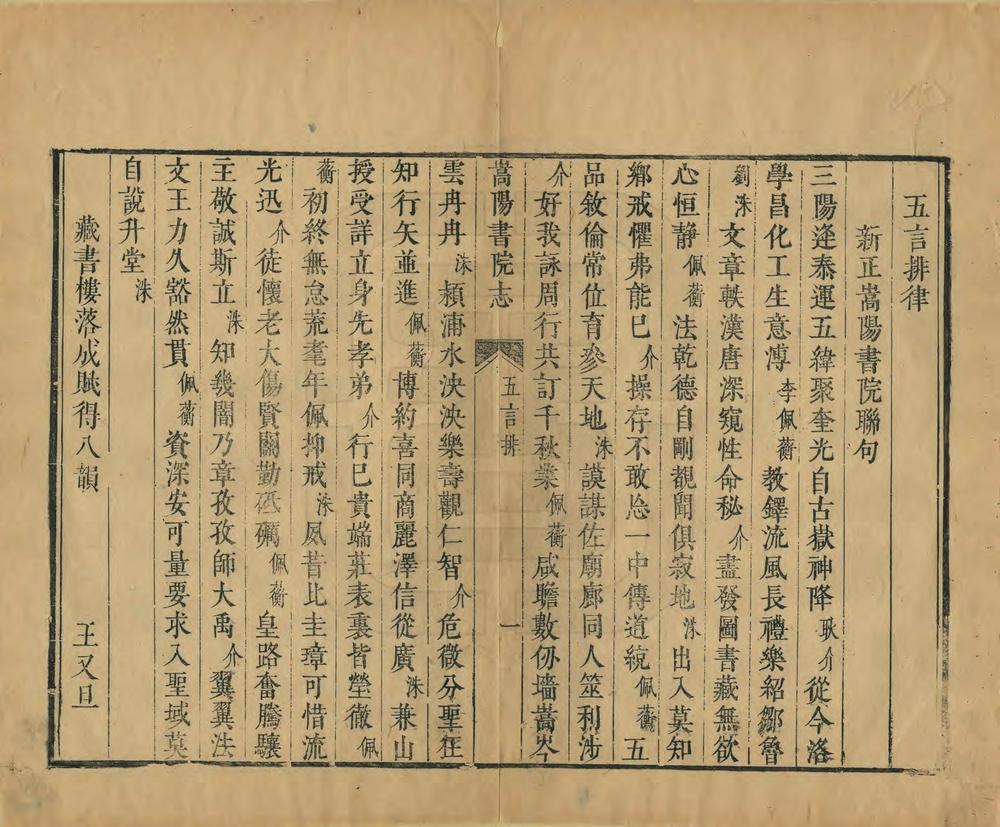 五言排律
新正嵩陽書院聯句
三陽逢泰運五緯聚奎光自古嶽神降耿介從今洛
學昌化工生意溥李佩蘅教鐸流風長禮樂紹鄒魯
劉洙文章軼漢唐深窺性命秘介盡發圖書藏無欲
心恒靜佩蘅法乾德自剛覩聞俱寂地洙出入莫知
鄉戒懼弗能已介操存不敢忘一中傳道統佩蘅五
品敘倫常位育參天地洙謨謀佐廟廊同人筮利涉
介好我詠周行共訂千秋業佩蘅咸瞻數仞墙嵩岑
嵩陽書院志
五言排
一
雲冉冉洙潁浦水泱泱樂壽觀仁智介危微分聖狂
知行矢並進佩蘅博約喜同商麗澤信從廣洙兼山
授受詳立身先孝弟介行已貴端莊表裏皆瑩徹佩
蘅初終無怠荒耄年佩抑戒洙夙昔比圭璋可惜流
光迅介徒懷老大傷賢關勤砥礪佩蘅皇路奮騰驤
主敬誠斯立洙知幾闇乃章孜孜師大禹介翼翼法
文王力久豁然貫佩蘅資深安可量要求入聖域莫
自說升堂洙
藏書樓落成賦得八韻
王又旦